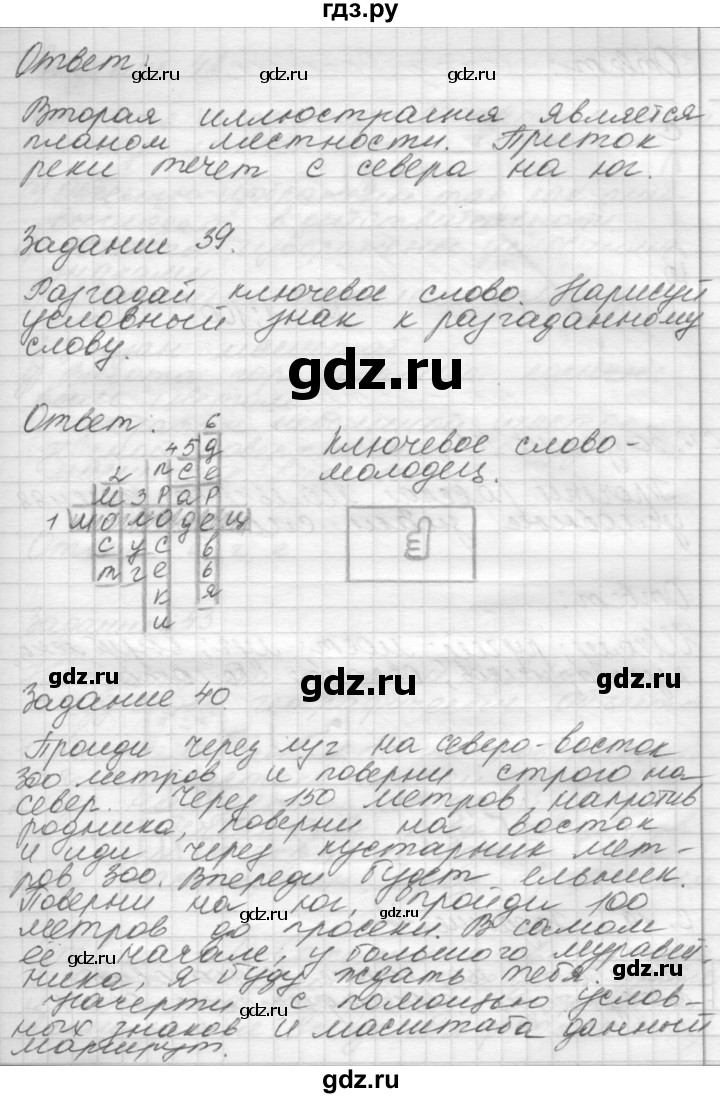 гдз.ру
Ответ:
gdz.ru gdz.ru gdz.ru
Вторая иллюстрация является
планом местности. Приток
реки течет с севера на юг.
Задание 39.
Разгадай ключевое слово. Нарисуй
условный знак к разгаданному
слову.
gdz.ru
Ответ.
6
4 5 д
2 п с е
м 3 р а р
1 м о л о д е ц
с у с в
т г е ь
к я
и
Ключевое слово-
молодец.
gdz.ru gdz.ru gdz.ru
Задание 40.
Пройди через луг на северо-восток
300 метров и поверни строго на
север. Через 150 метров, напротив
родника, поверни на восток
и иди через кустарник мет-
ров 300. Впереди будет ельник.
Поверни на юг, пройди 100
метров до просеки. В самом
её начале, у большого муравей-
ника, я буду ждать тебя.
gdz.ru gdz.ru gdz.ru
Начерти с помощью услов-
ных знаков и масштаба данный
маршрут.
gdz.ru
gdz.ru